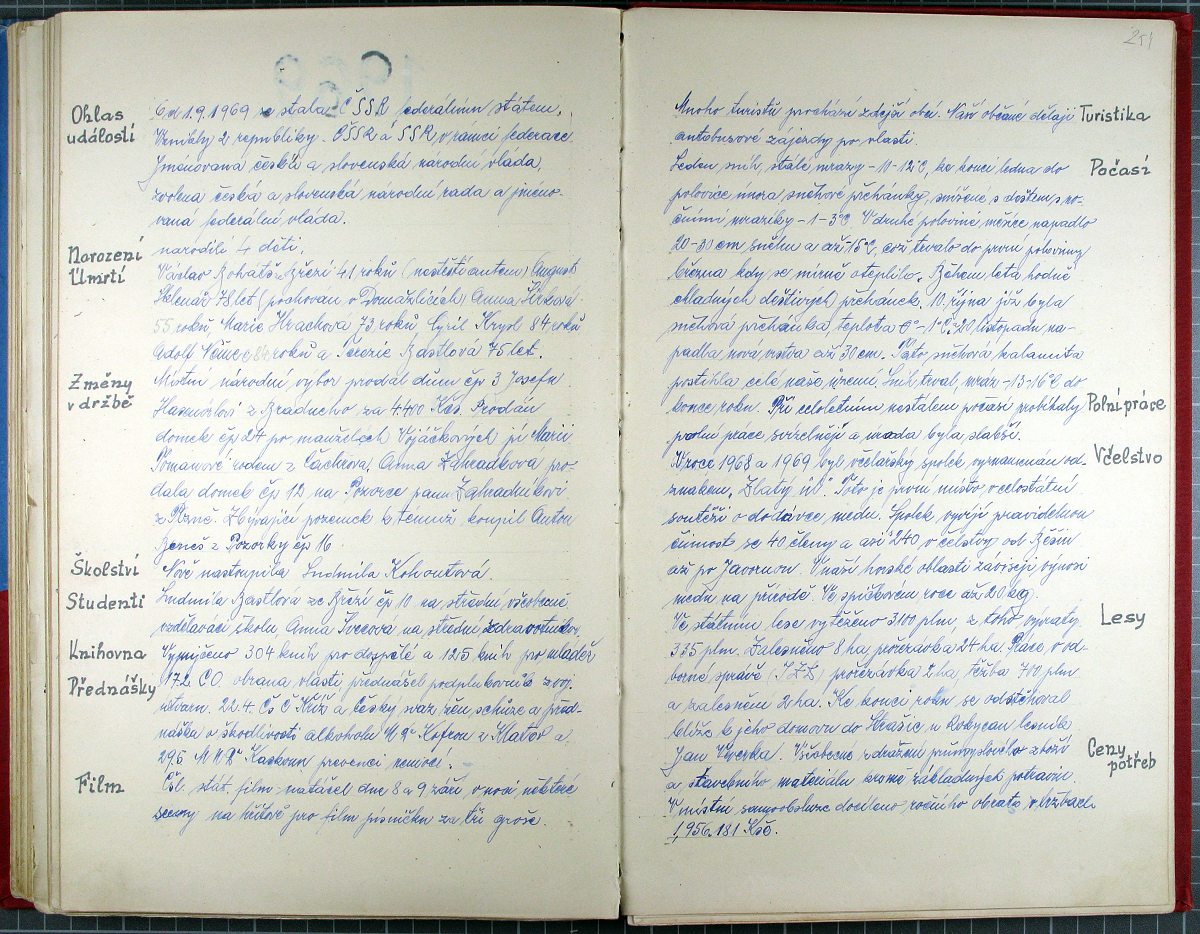 Ohlas
událostí
Od 1.9.1969 se stala ČSSR federálním státem.
Vznikly 2 republiky. ČSSR a SSR, v rámci federace
Jmenována česká a slovenská národní vláda,
zvolena česká a slovenská národní rada a jmeno-
vaná federální vláda.
Narození
narodili 4 děti.
Úmrtí
Václav z Březí 41 roků (neštěstí autem) August
Sklenář 78 let (pochován v Domažlicích) Anna
55 roků, Marie Hrachová 73 roků Cyril Krysl 84 roků
Adolf Němec roků a Terezie Bastlová 75 let.
Změny
v držbě
Místní národní výbor prodal dům čp 3 Josefu
z za 4.400 Kčs. Prodán
domek čp 24 po manželích Vojáčkových pí Marii
rodem z Čachrova. Anna Zahradková pro-
dala domek čp 12 na Pozorce panu Zahradníkovi
z Plzně. Zbývající pozemek k témuž koupil Anton
Beneš z Pozorky čp 16.
Školství
Nově nastoupila Ludmila Kohoutová.
Studenti
Ludmila Bastlová ze Březí čp 10 na střední všeobecně
vzdělávací školu, Anna Švecová na střední zdravotnickou
Knihovna
Vypůjčeno 304 knih pro dospělé a 125 knih pro mládež
Přednášky
17.2. CO. obrana vlasti přednášel podplukovník z voj.
útvaru. 22.4. Čs Č Kříž a Český svaz žen, schůze a před-
náška o škodlivosti alkoholu MUDr Kofron z Klatov a
29.5 MUDr prevenci nemocí.
Film
Čsl. stát. film natáčel dne 8 a 9 září o novi některé
scény na hřišti pro film písnička za tři groše.
251
Mnoho turistů prochází zdejší obcí. Naši občané dělají Turistika
autobusové zájezdy po vlasti.
Leden sníh, stálé mrazy -11-12°C, ke konci ledna do Počasí
polovice února sněhové přehánky, smíšené s deštěm s no-
čními mrazíky -1-3°C. V druhé polovině měsíce napadlo
20-30 cm sněhu a až -15°C, což trvalo do první poloviny
března kdy se mírně oteplilo. Během léta hodně
chladných deštivých přehánek, 10. října již byla
sněhová přehánka, teplota 0°-1°C. 20 listopadu na-
padla nová vrstva až 30 cm. Tato sněhová kalamita
postihla celé naše území. Sníh trval, mráz -13-16°C do
konce roku. Při celoletním nestálém počasí probíhaly Polní práce
polní práce svízelněji a úroda byla slabší.
V roce 1968 a 1969 byl včelařský spolek vyznamenán od- Včelstvo
znakem „Zlatý úl". Toto je první místo v celostátní
soutěži o dodávce medu. Spolek vyvíjí pravidelnou
činnost se 40 členy a asi 240 včelstvy od Běšin
až po Javornou. V naší horské oblasti závisejí výnosi
medu na přírodě. Ve špičkovém roce až 20 kg.
Ve státním lese vytěženo 3100 plm, z toho vývraty Lesy
335 plm. Zalesněno 8 ha, prořezávka 24 ha. Práce v od-
borné správě (SZL) prořezávka 2 ha, těžba 700 plm
a zalesněno 2 ha. Ke konci roku se odstěhoval
blíže k jeho domovu do Strašic u Rokycan lesník
Jan Veverka. Všeobecné zdražení průmyslového zboží Ceny
potřeb
a stavebního materiálu krome základných potravin.
V místní samoobsluze docíleno ročního obratu v tržbách
1,956.181 Kčs.